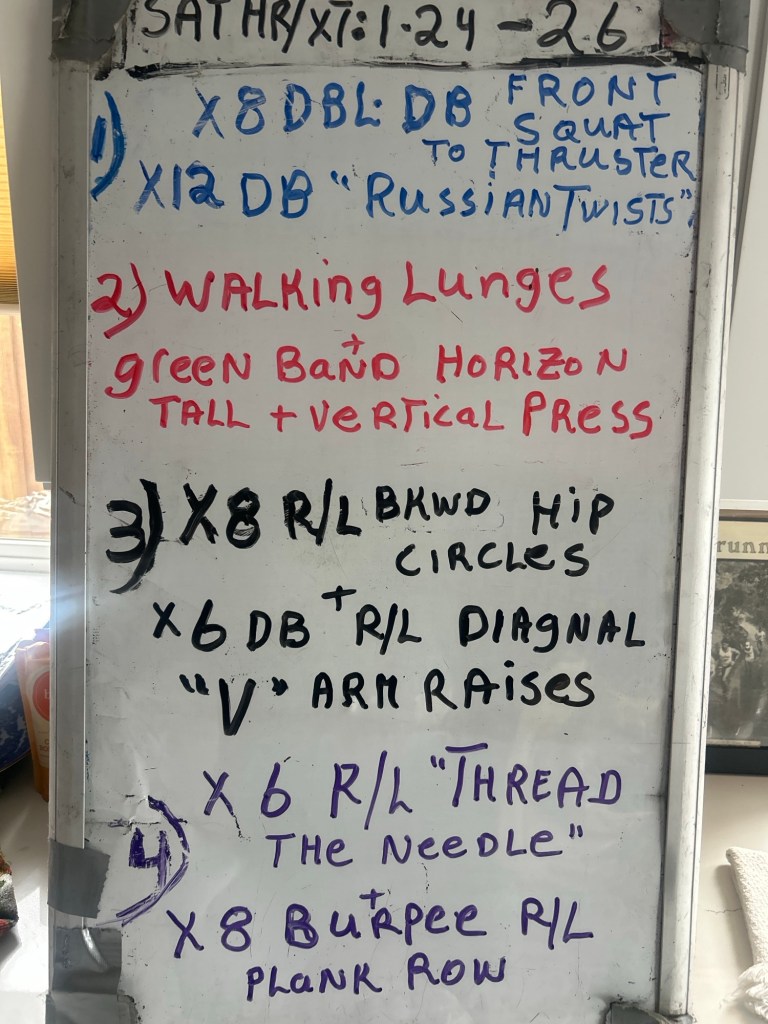 SAT HR/XT: 1-24-26
1) X8 DBL DB FRONT
SQUAT
TO THRUSTER
X12 DB "RUSSIAN TWISTS"
2) WALKing LUnges
+
green BAND HORIZON
TALL + VERTICAL PRESS
3) X8 R/L BKWD HIP
CIRCLES
+
X6 DB R/L DIAGNAL
"V" ARM RAISES
4) X6 R/L "THREAD
THE NEEDLE"
+
X8 BURPEE R/L
PLANK ROW
runn